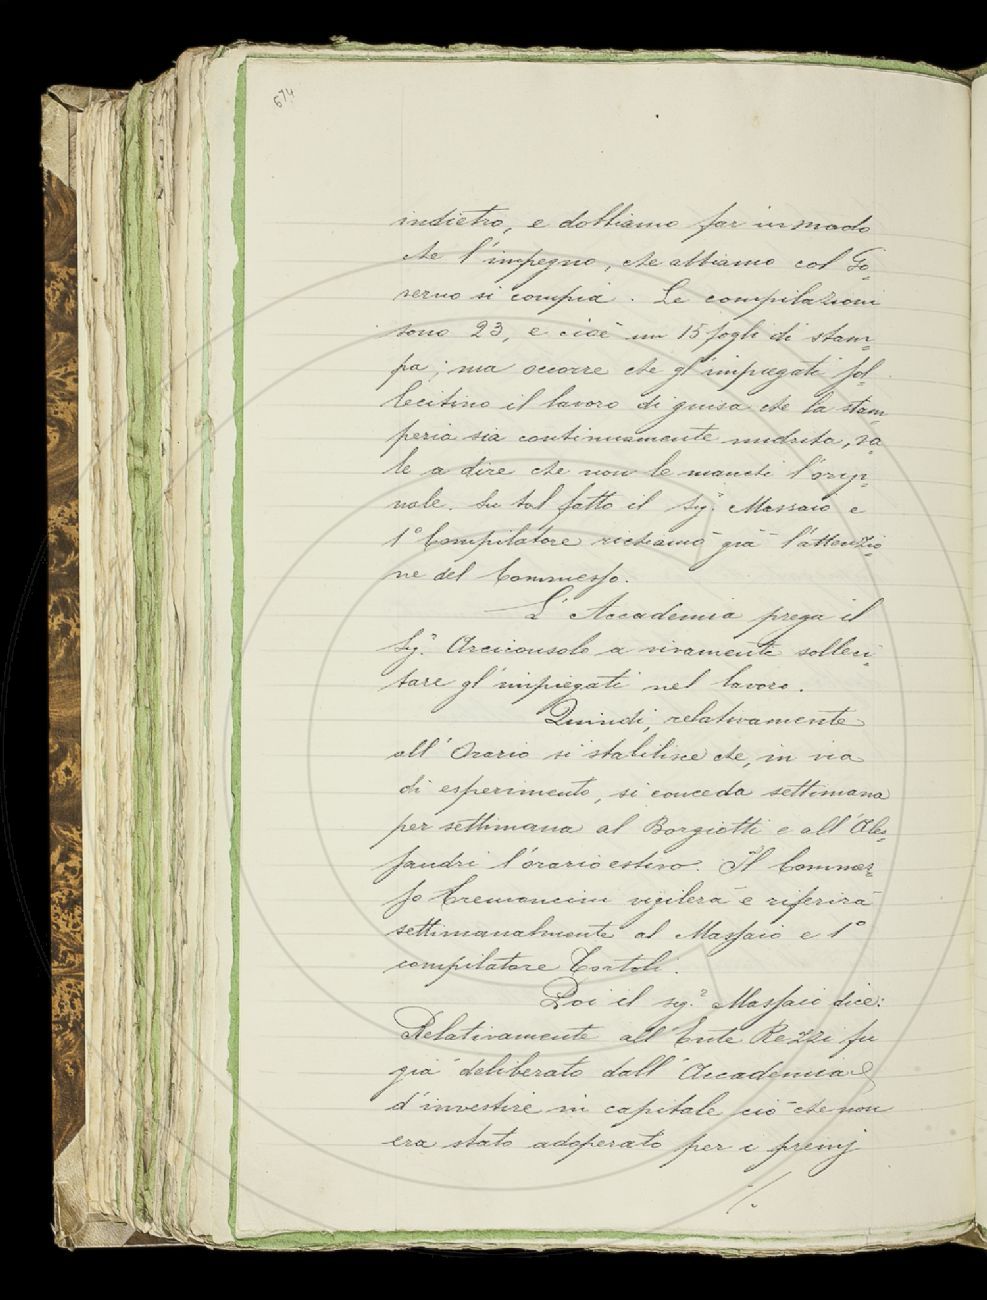 674
indietro, e dobbiamo far in modo
che l'impegno, che abbiamo col Go=
verno si compia. Le compilazioni
sono 23, e cioè un 15 fogli di stam=
pa; ma occorre che gl'impiegati sol
lecitino il lavoro di guisa che la stam=
peria sia continuamente nudrita, va=
le a dire che non le manchi l'origi=
nale. Su tal fatto il Sig.r Massaio e
1° Compilatore richiamò già l'attenzio=
ne del Commesso.
L'Accademia prega il
Sig.r Arciconsolo a vivamente solleci=
tare gl'impiegati nel lavoro.
Quindi, relativamente
all'Orario si stabilisce che, in via
di esperimento, si conceda settimana
per settimana al Borgiotti e all'Ales=
sandri l'orario estivo. Il Commes=
so Cremoncini vigilerà e riferirà
settimanalmente al Massaio e 1°
compilatore Tortoli.
Poi il sig.r Massaio dice:
Relativamente all'Ente Rezzi fu
già deliberato dall'Accademia
d'investire in capitale ciò che non
era stato adoperato per i premj
./.